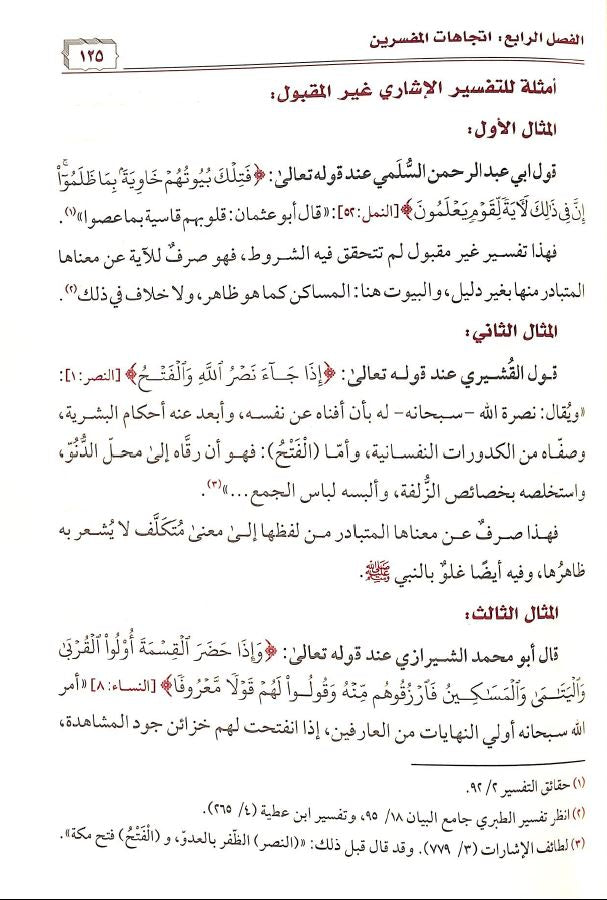 الفصل الرابع: اتجاهات المفسرين
١٢٥
أمثلة للتفسير الإشاري غير المقبول:
المثال الأول:
قول ابي عبد الرحمن السُّلَمي عند قوله تعالىٰ: ﴿فَتِلْكَ بُيُوتُهُمْ خَاوِيَةًۢ بِمَا ظَلَمُوٓا۟ۗ
إِنَّ فِى ذَٰلِكَ لَـَٔايَةً لِّقَوْمٍ يَعْلَمُونَ﴾ [النمل: ٥٢]: «قال أبو عثمان: قلوبهم قاسية بما عصوا»(١).
فهذا تفسير غير مقبول لم تتحقق فيه الشروط، فهو صرفٌ للآية عن معناها
المتبادر منها بغير دليل، والبيوت هنا: المساكن كما هو ظاهر، ولا خلاف في ذلك(٢).
المثال الثاني:
قول القُشيري عند قوله تعالىٰ: ﴿إِذَا جَآءَ نَصْرُ ٱللَّهِ وَٱلْفَتْحُ﴾ [النصر: ١]:
«ويُقال: نصرة الله -سبحانه- له بأن أفناه عن نفسه، وأبعد عنه أحكام البشرية،
وصفَّاه من الكدورات النفسانية، وأمّا (الْفَتْحُ): فهو أن رقَّاه إلىٰ محلّ الدُّنُوّ،
واستخلصه بخصائص الزُّلفة، وألبسه لباس الجمع...»(٣).
فهذا صرفٌ عن معناها المتبادر من لفظها إلىٰ معنىٰ مُتَكلَّف لا يُشعر به
ظاهرُها، وفيه أيضًا غلوٌ بالنبي ﷺ.
المثال الثالث:
قال أبو محمد الشيرازي عند قوله تعالىٰ: ﴿وَإِذَا حَضَرَ ٱلْقِسْمَةَ أُو۟لُوا۟ ٱلْقُرْبَىٰ
وَٱلْيَتَـٰمَىٰ وَٱلْمَسَـٰكِينُ فَٱرْزُقُوهُم مِّنْهُ وَقُولُوا۟ لَهُمْ قَوْلًا مَّعْرُوفًا﴾ [النساء: ٨] «أمر
الله سبحانه أولي النهايات من العارفين، إذا انفتحت لهم خزائن جود المشاهدة،
(١) حقائق التفسير ٢/ ٩٢.
(٢) انظر تفسير الطبري جامع البيان ١٨/ ٩٥، وتفسير ابن عطية (٤/ ٢٦٥).
(٣) لطائف الإشارات (٣/ ٧٧٩). وقد قال قبل ذلك: «(النصر) الظَّفر بالعدوّ، و (الْفَتْحُ) فتح مكة».